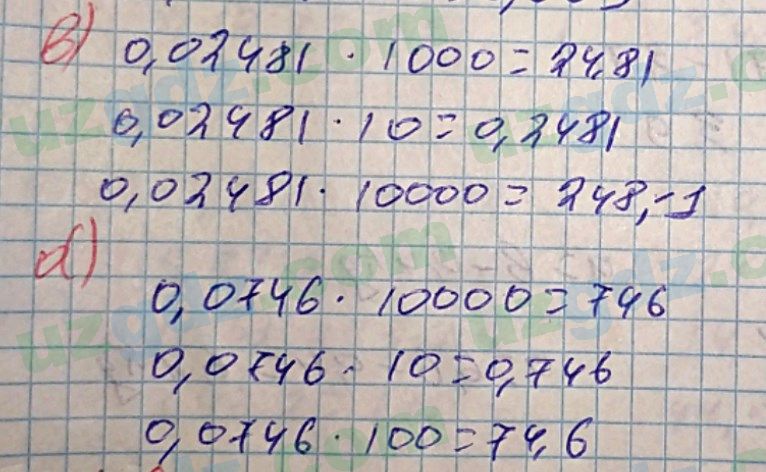 в) 0,02481 · 1000 = 24,81
0,02481 · 10 = 0,2481
0,02481 · 10000 = 248,-1
d)
0,0746 · 10000 = 746
0,0746 · 10 = 0,746
0,0746 · 100 = 74,6